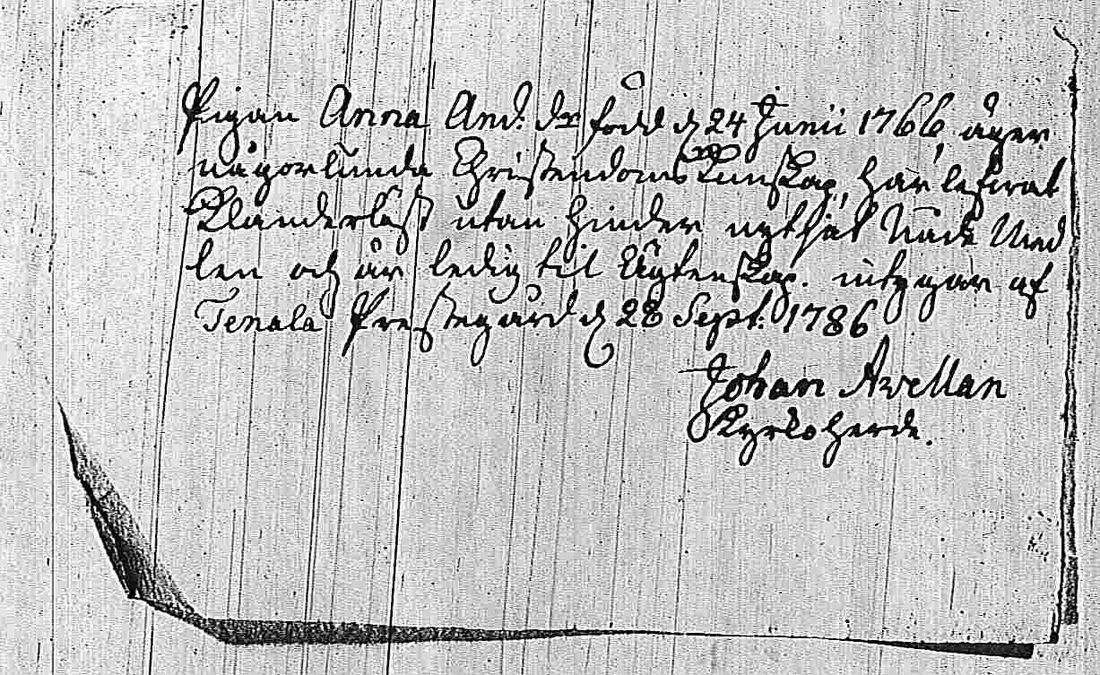 Pigan Anna And: dr född d 24 Junii 1766, äger
någorlunda Christendoms Kunskap, har lefwat
Klanderlöst utan hinder nythiat Nåde Med
len och är ledig til Ägtenskap. intygar af
Tenala Prestegård d 28 Sept: 1786
Johan Avellan
Kyrkoherde.